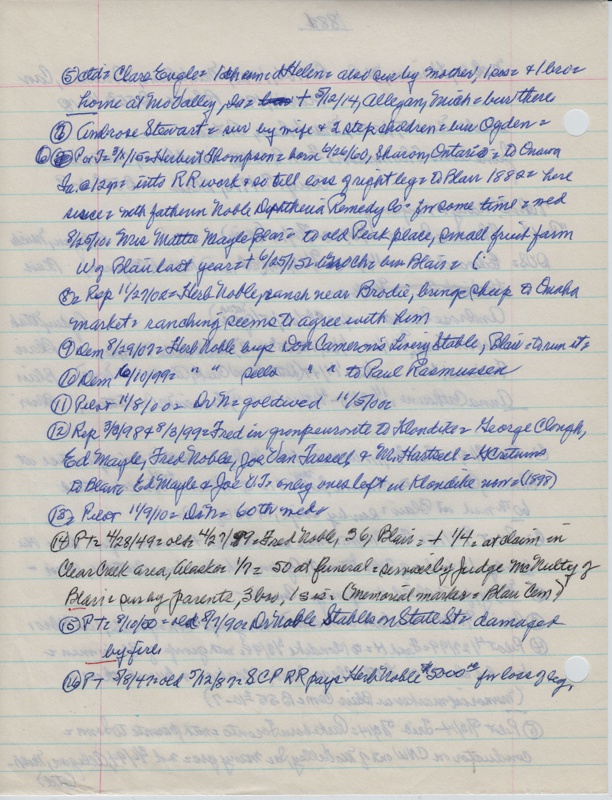 ⑤ ctd= Clara Eugle= 1 ch named Helen= also sur by mother, 1 sis= & 1 bro=
home at Mo Valley, Ia= + 5/12/14, Allegan, Mich= bur there
⑦ Ambrose Stewart= sur by wife & 2 step children= bur Ogden=
⑥ Herbert Thompson= born 4/26/60, Sharon, Ontario= to Onawa
Ia. @ 12yr= into RR work & so till loss of right leg= to Blair 1882= here
since= with father in Noble Diphtheria Remedy Co= for some time= med
8/25/10= Mrs Mayle Blair= to old Peak place, small fruit farm
W of Blair last year= + 6/25/15= no ch= bur Blair= (
⑧= Rep 11/27/02= Herb Noble, ranch near Brodie, brings sheep to Omaha
market= ranching seems to agree with him
⑨ Dem 8/29/07= Herb Noble buys Don Cameron's Livery Stable, Blair= to run it=
⑩ Dem 10/10/99= " " sells " " to Paul Rasmussen
⑪ Pilot 11/8/00= Dr N= gold wed 11/5/00
⑫ Rep 3/3/98 & 8/3/99= Fred in group enroute to Klondike= George Clough,
Ed Mayle, Fred Noble, Joe Van Tassell & M. Hartsell= returns
to Blair= Ed Mayle & Joe V.T. only ones left in Klondike now= (1898)
⑬= Pilot 11/9/10= Dr N= 60th wed=
⑭ PT= 4/28/49= old= 4/27/99= Fred Noble, 36, Blair= + 1/4= at claim in
Clear Creek area, Alaska 1/7= 50 at funeral= service by Judge McNulty of
Blair= sur by parents, 3 bro, 1 sis= (memorial marker= Blair Cem)
⑮ PT= 8/10/50= old 8/7/90= Dr Noble Stables on State St= damaged
by fire=
⑯ PT 5/8/47= old 5/12/87= SCP RR pays Herb Noble $5000⁰⁰ for loss of leg,